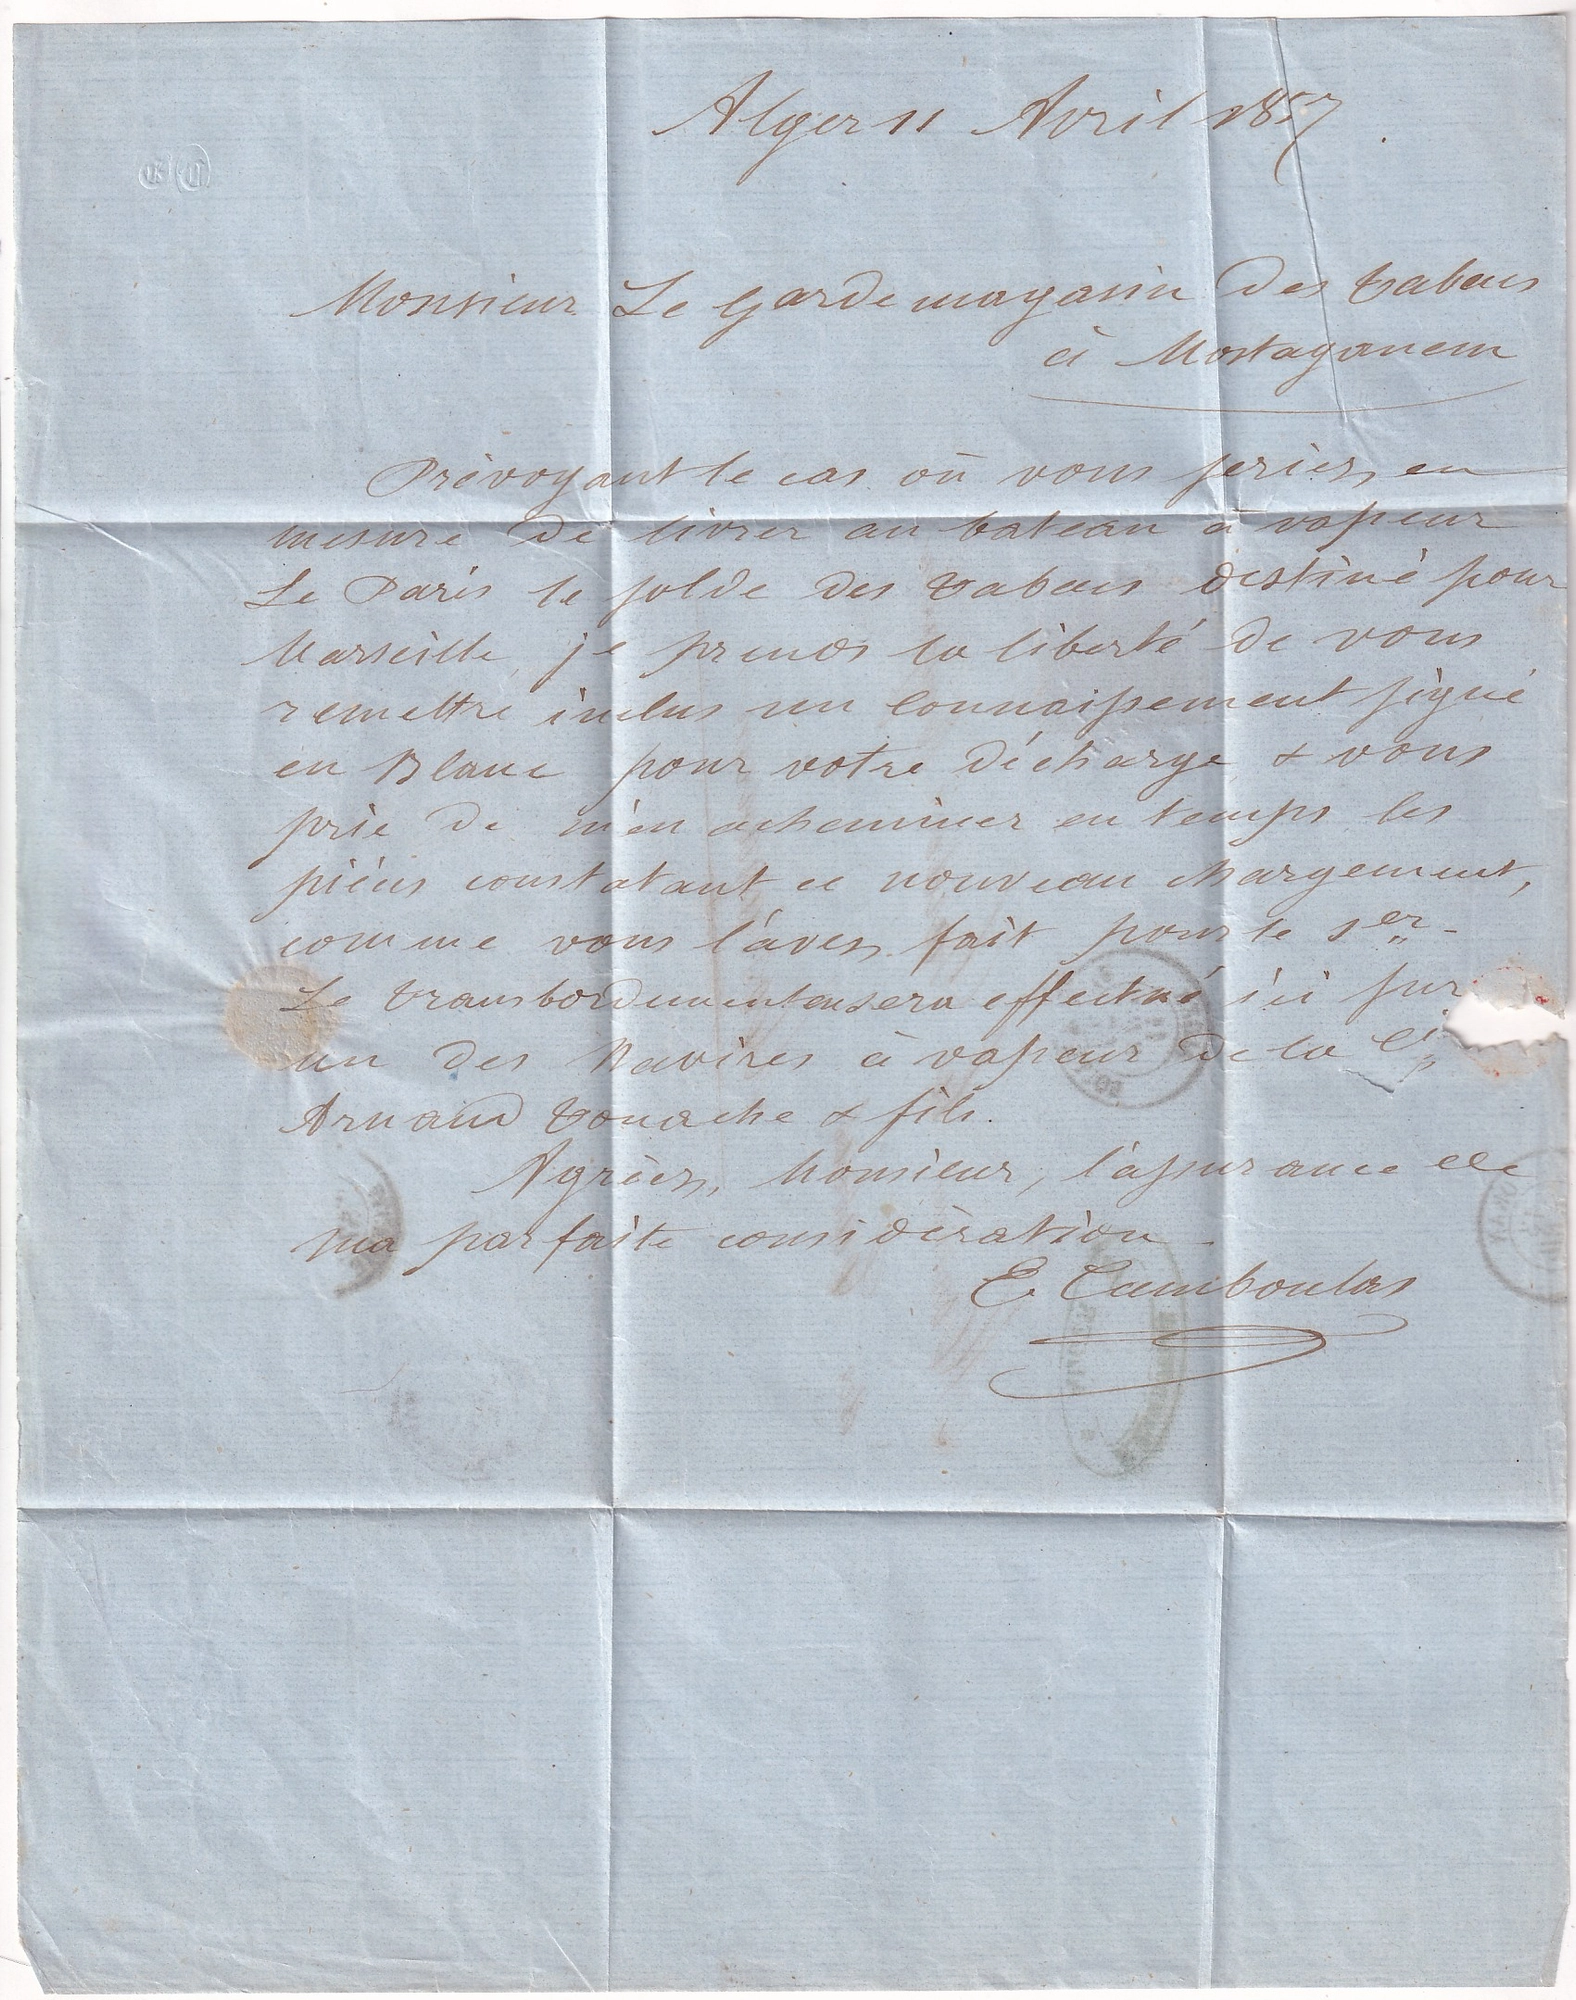 Alger 11 Avril 1857
Monsieur Le Gardemagasin des tabacs
à Mostaganem
Prévoyant le cas où vous seriez en
mesure de livrer au bateau à vapeur
Le Paris le solde des tabacs destiné pour
Marseille, je prends la liberté de vous
remettre inclus un connaissement signé
en Blanc pour votre décharge, & vous
prie de m'en acheminer en temps les
pièces constatant ce nouveau chargement,
comme vous l'avez fait pour le 1er -
Le transbordement en sera effectué ici sur
un des Navires à vapeur de la Cie
Arnaud Touache & fils.
Agréez, Monsieur, l'assurance de
ma parfaite considération -
E Camboulas